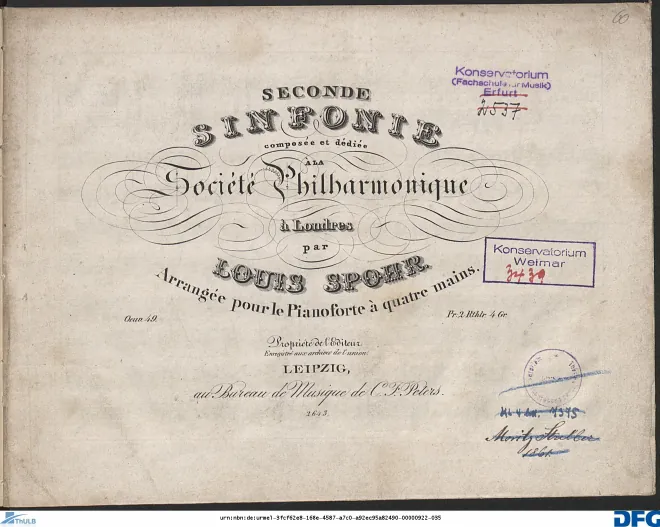 60
SECONDE
SINFONIE
composée et dédiée
À LA
Société Philharmonique
à Londres
par
LOUIS SPOHR.
Arrangée pour le Pianoforte à quatre mains.
Oeuv. 49.
Pr. 2 Rthlr. 4 Gr.
Propriété de l'Editeur.
Enregistré aux archives de l'union.
LEIPZIG,
au Bureau de Musique de C. F. Peters.
2643.
Konservatorium
(Fachschule für Musik)
Erfurt
2537
Konservatorium
Weimar
3439
7375
Moritz
1861.
ThULB
urn:nbn:de:urmel-3fcf62e8-168e-4587-a7c0-a92ec95a82490-00000922-035
DFG